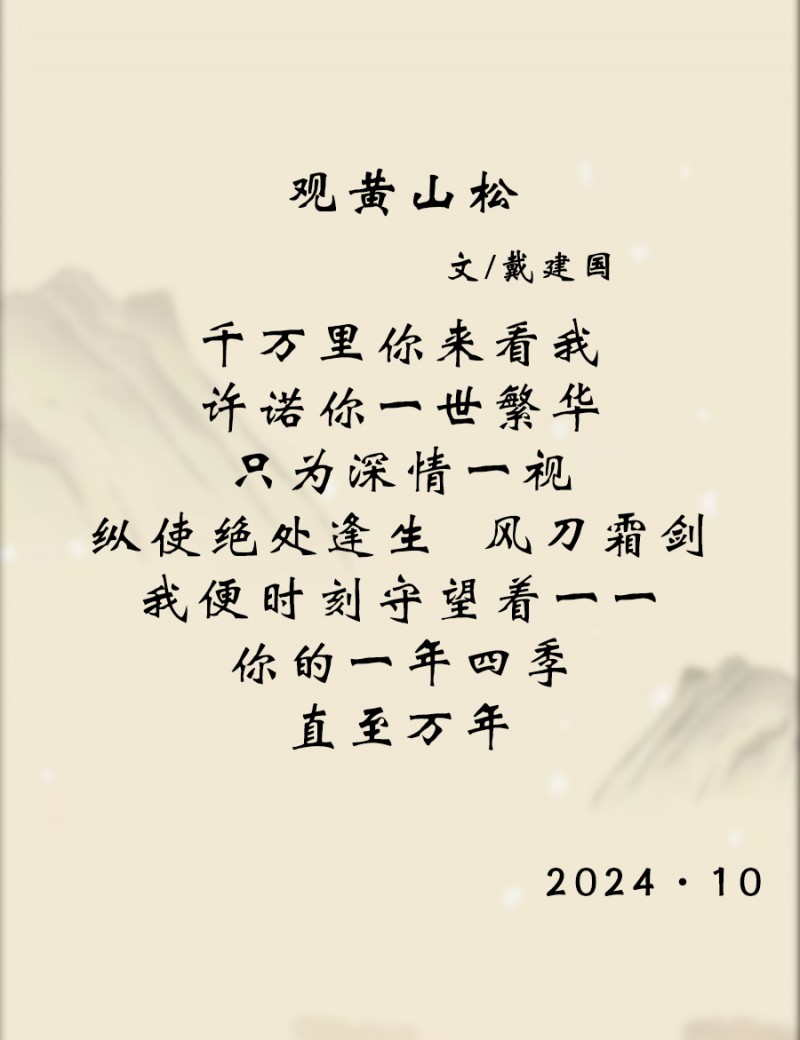 观黄山松
文/戴建国
千万里你来看我
许诺你一世繁华
只为深情一视
纵使绝处逢生 风刀霜剑
我便时刻守望着一一
你的一年四季
直至万年
2024·10